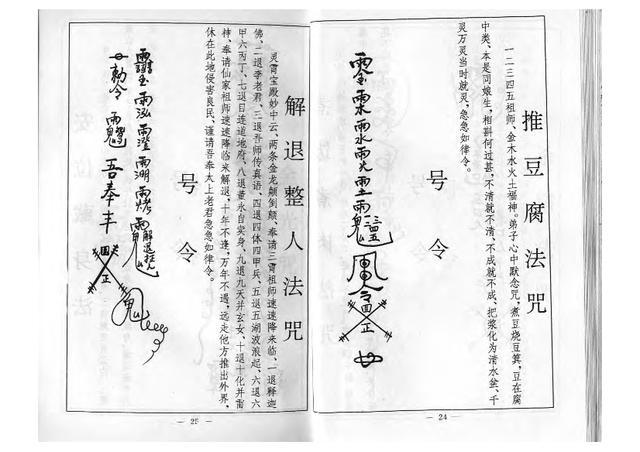 推豆腐法咒
一二三四五祖师、金木水火土福神。弟子心中默念咒，煮豆烧豆箕，豆在腐
中类、本是同娘生，相斟何过甚，不清就不清、不成就不成、把浆化为清水盆、千
灵万灵当时就灵，急急如律令。
号令
— 24 —
解退整人法咒
灵霄宝殿妙中云、两条金龙颠倒颠、奉请三霄祖师速速降来临、一退释迦
佛、二退李老君、三退吾师传真语、四退四体四甲兵、五退五湖波浪起、六退六
甲六丙丁、七退目连道地府、八退董永自实身、九退九天并玄女、十退十化并雷
神、奉请仙家祖师速速降临来解退、十年不逢、万年不遇、远走他方推出外界、
休在此地侵害良民、谨请吾奉太上老君急急如律令。
号令
勅令
吾奉丰
— 25 —